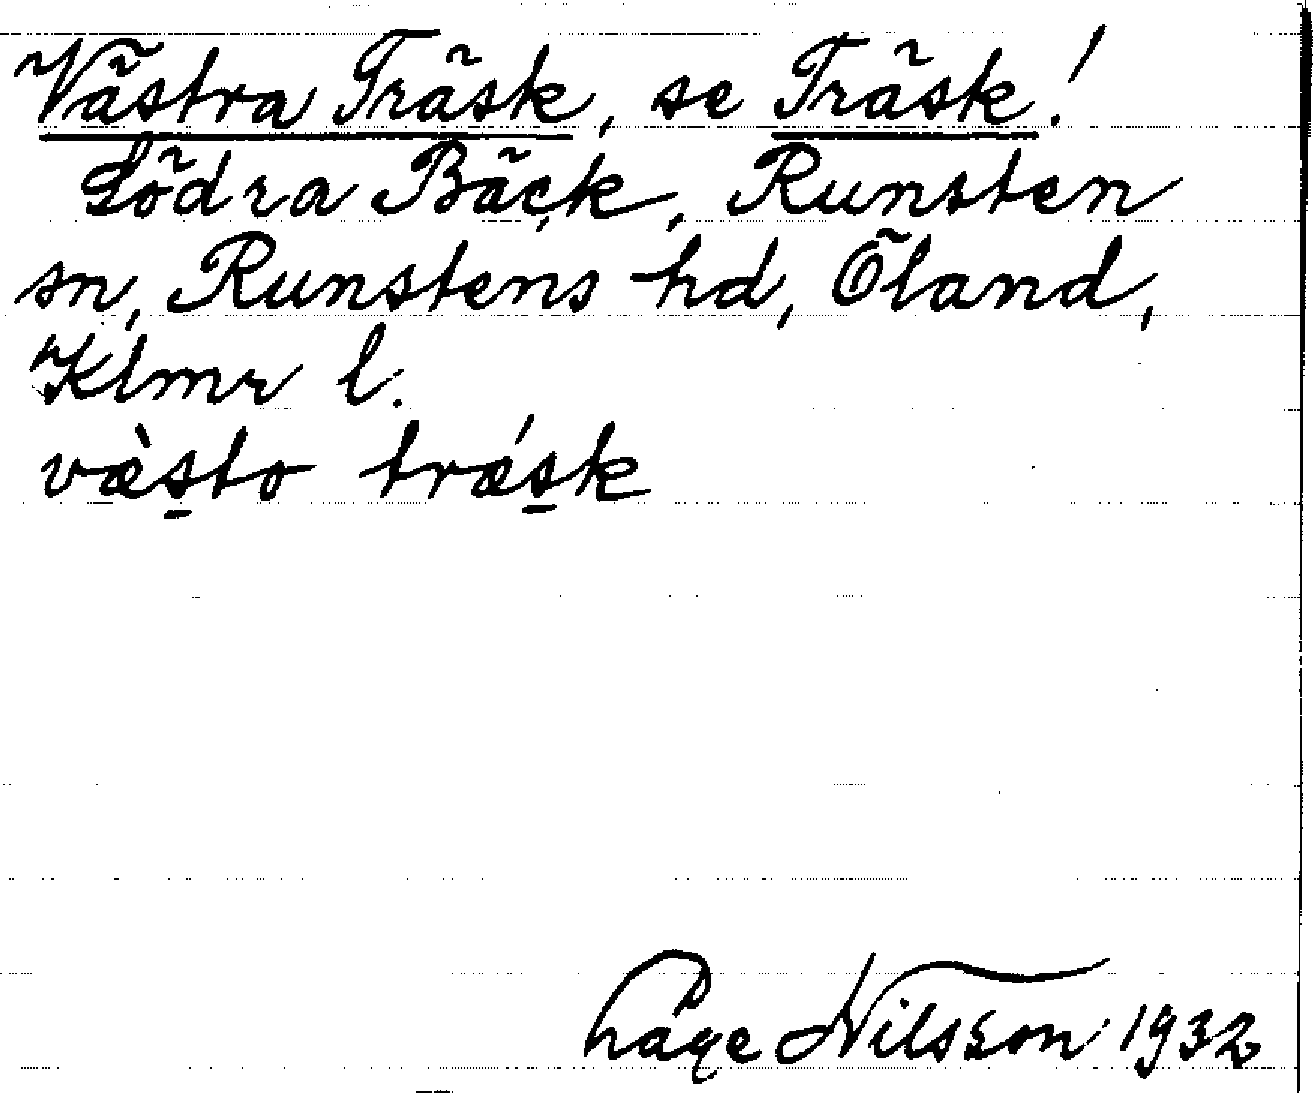 Västra Träsk, se Träsk!
Södra Bäck, Runsten
sn, Runstens hd, Öland,
Klmr l.
væ̀sto trǽsk
Håge Nilsson 1932